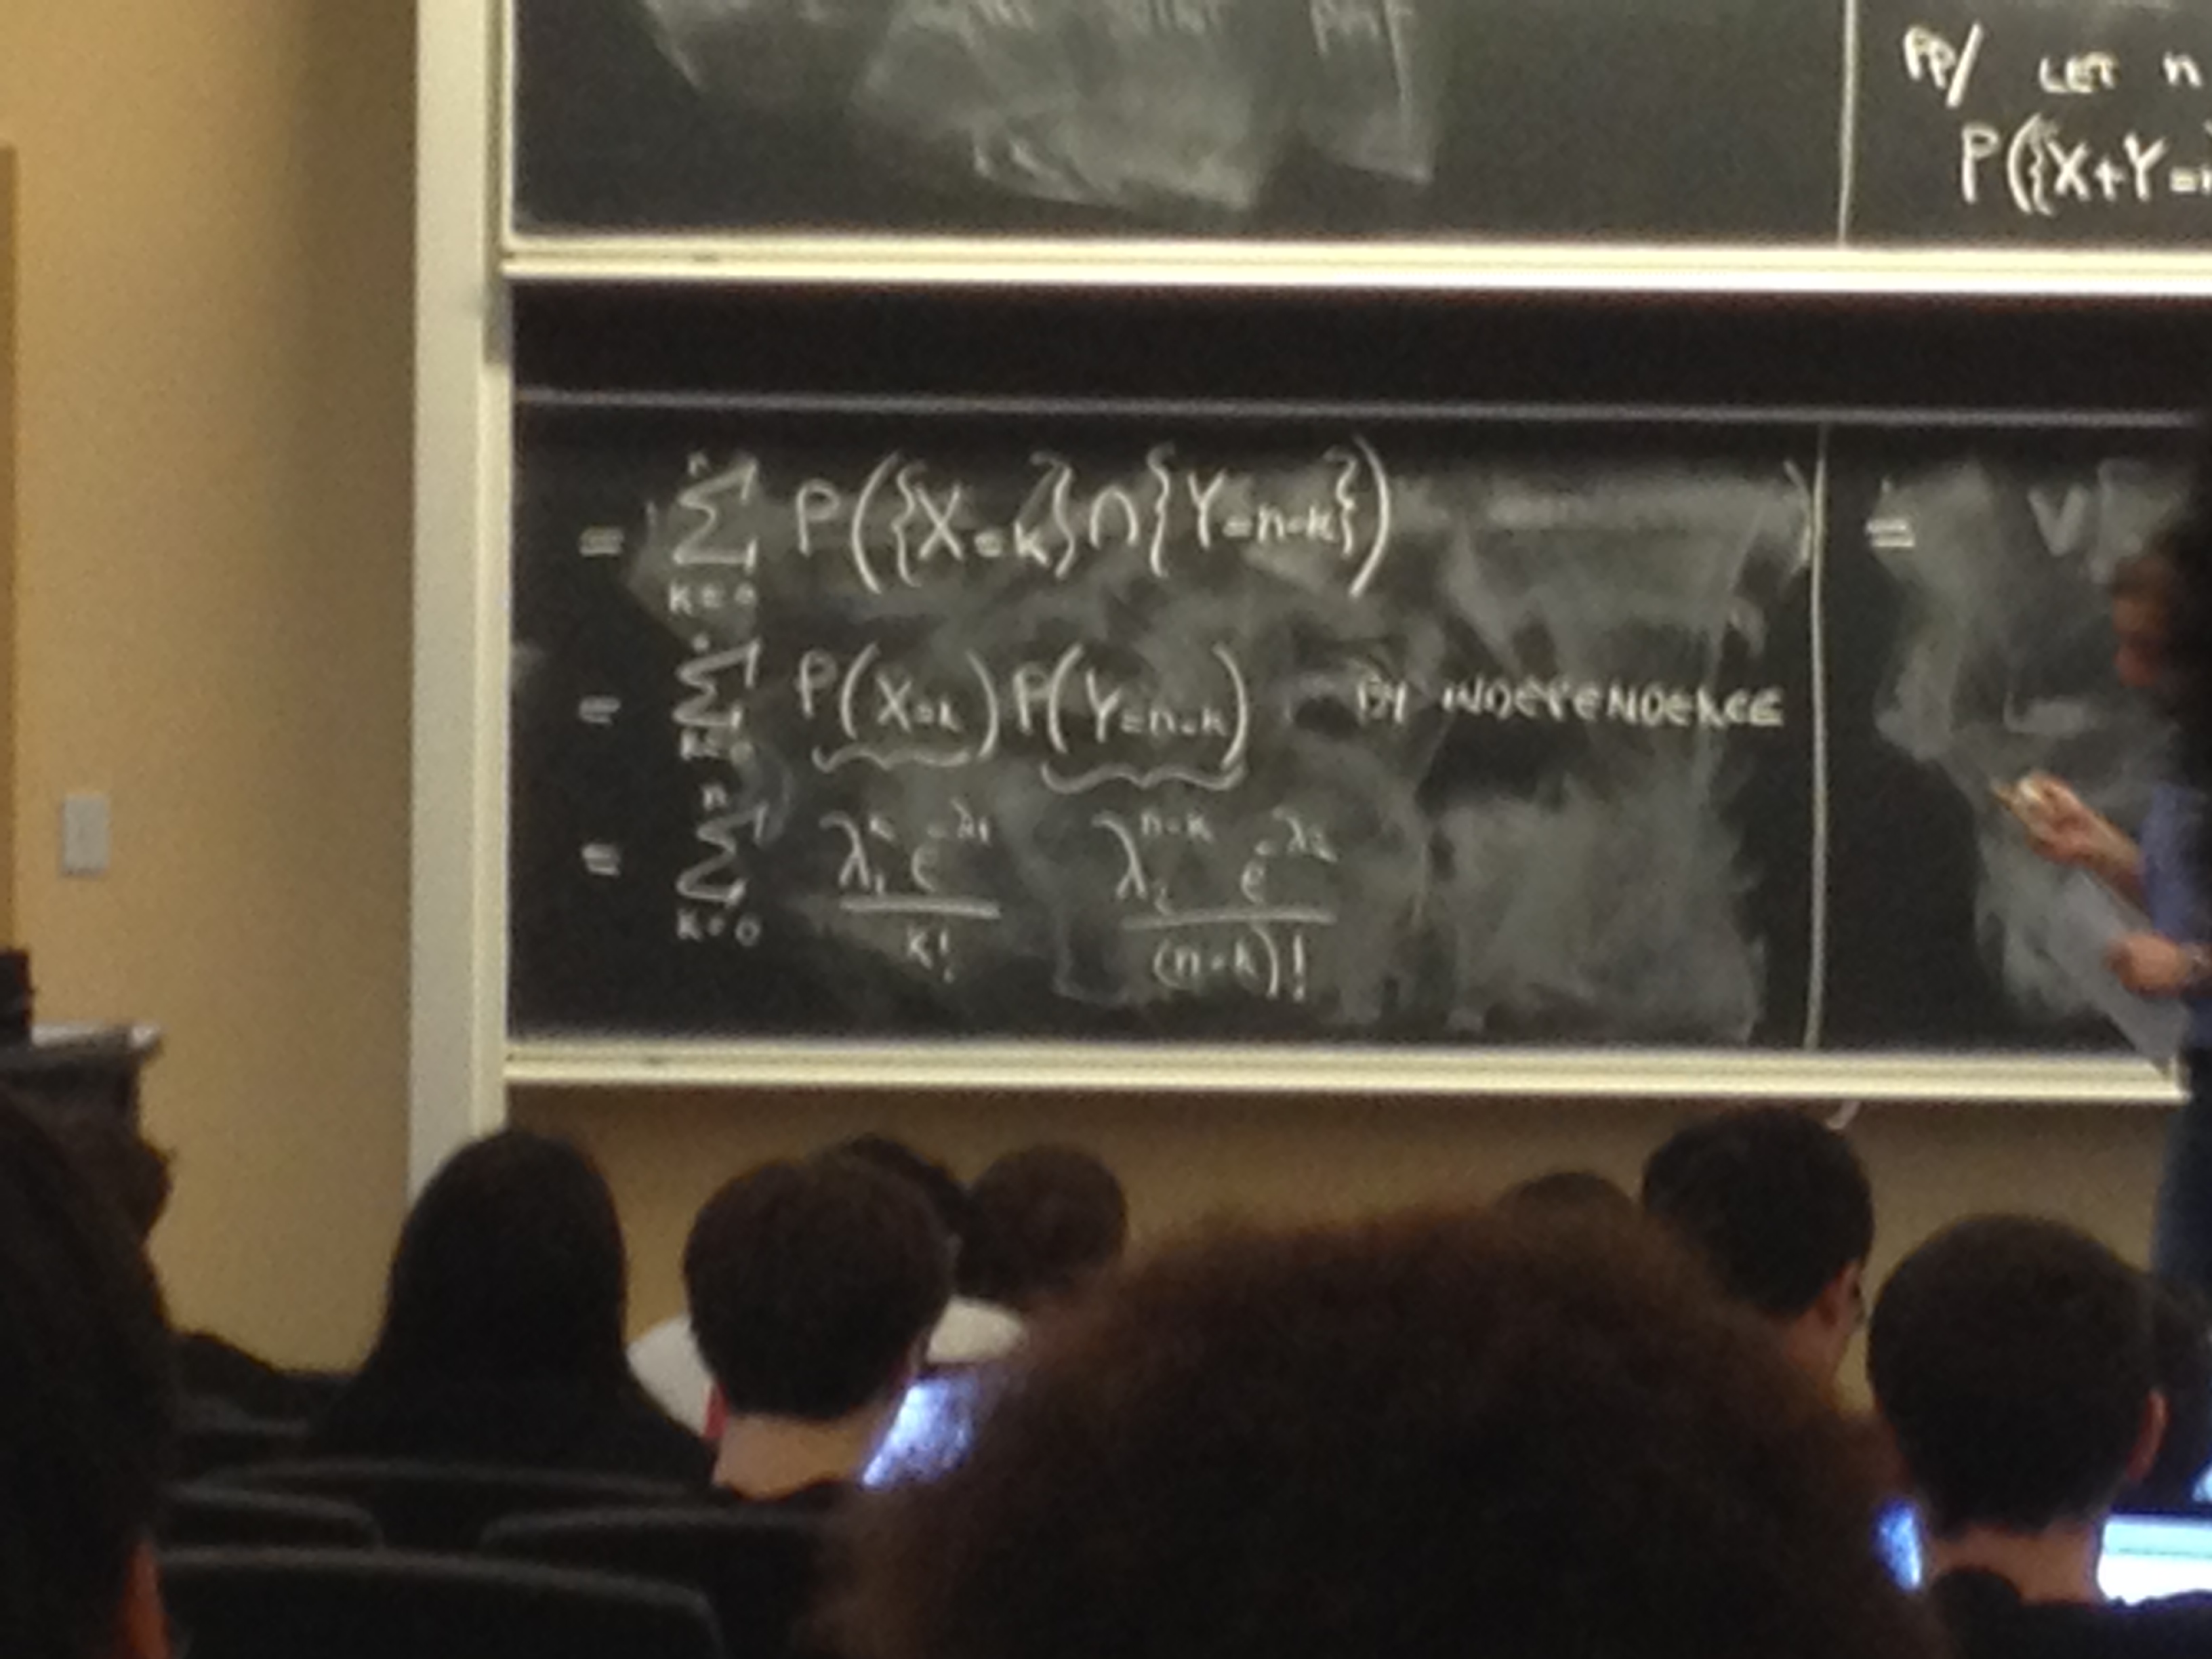 PF/ LET n
P({X+Y=n
= \sum_{k=0}^{n} P({X=k}∩{Y=n-k})
= \sum_{k=0}^{n} P(X=k) P(Y=n-k) BY INDEPENDENCE
= \sum_{k=0}^{n} \frac{λ_1^k e^{-λ_1}}{k!} \frac{λ_2^{n-k} e^{-λ_2}}{(n-k)!}
=